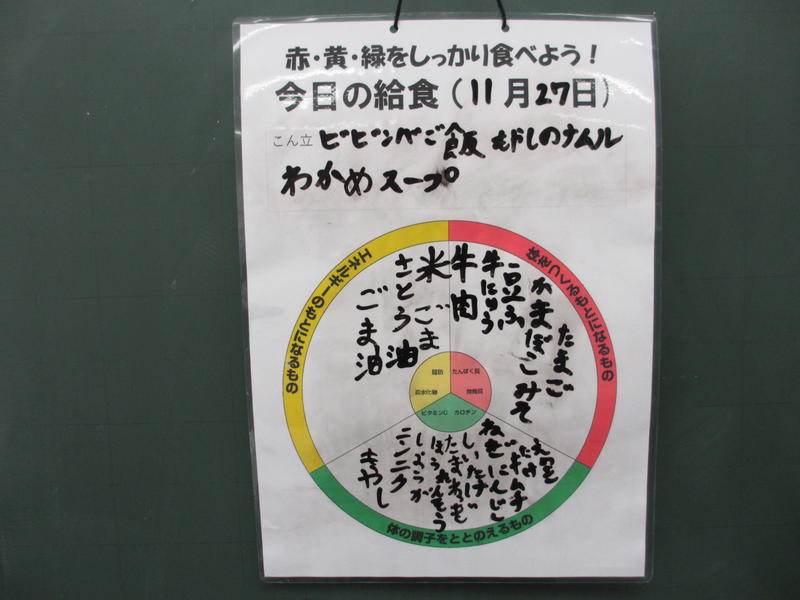 赤・黄・緑をしっかり食べよう！
今日の給食（11月27日）
こん立 ビビンベご飯 もやしのナムル
わかめスープ
体をつくるもとになるもの
牛肉
牛にゅう
豆ふ
かまぼこ みそ
たまご
エネルギーのもとになるもの
米 ごま
さとう 油
ごま油
脂肪
たんぱく質
炭水化物
無機質
ビタミンC
カロチン
えのき
キムチ
ねぎ にんじん
しいたけ
たまねぎ
ほうれんそう
しょうが
ニンニク
もやし
体の調子をととのえるもの